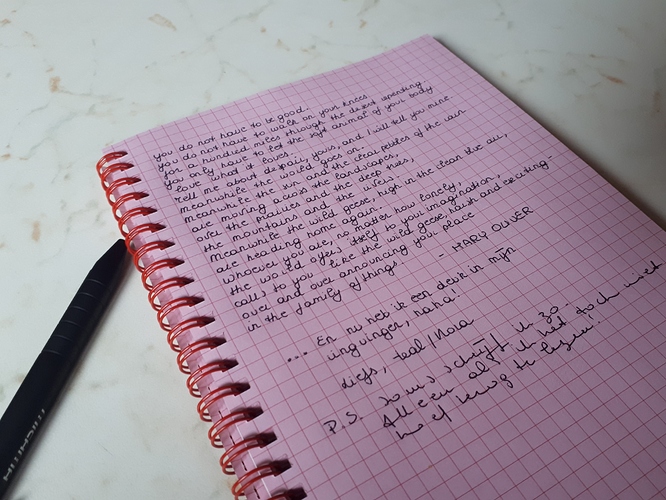 you do not have to be good.
you do not have to walk on your knees
for a hundred miles through the desert repenting.
you only have to let the soft animal of your body
love what it loves.
tell me about despair, yours, and I will tell you mine
meanwhile the world goes on.
meanwhile the sun and the clear pebbles of the rain
are moving across the landscapes,
over the prairies and the deep trees,
the mountains and the rivers.
meanwhile the wild geese, high in the clean blue air,
are heading home again.
whoever you are, no matter how lonely,
the world offers itself to your imagination,
calls to you like the wild geese, harsh and exciting-
over and over announcing your place
in the family of things.
- MARY OLIVER
... En nu heb ik een deuk in mijn
ringvinger, haha!
liefs, teal/Nora
P.S. Soms schrijf ik zo.
Alleen